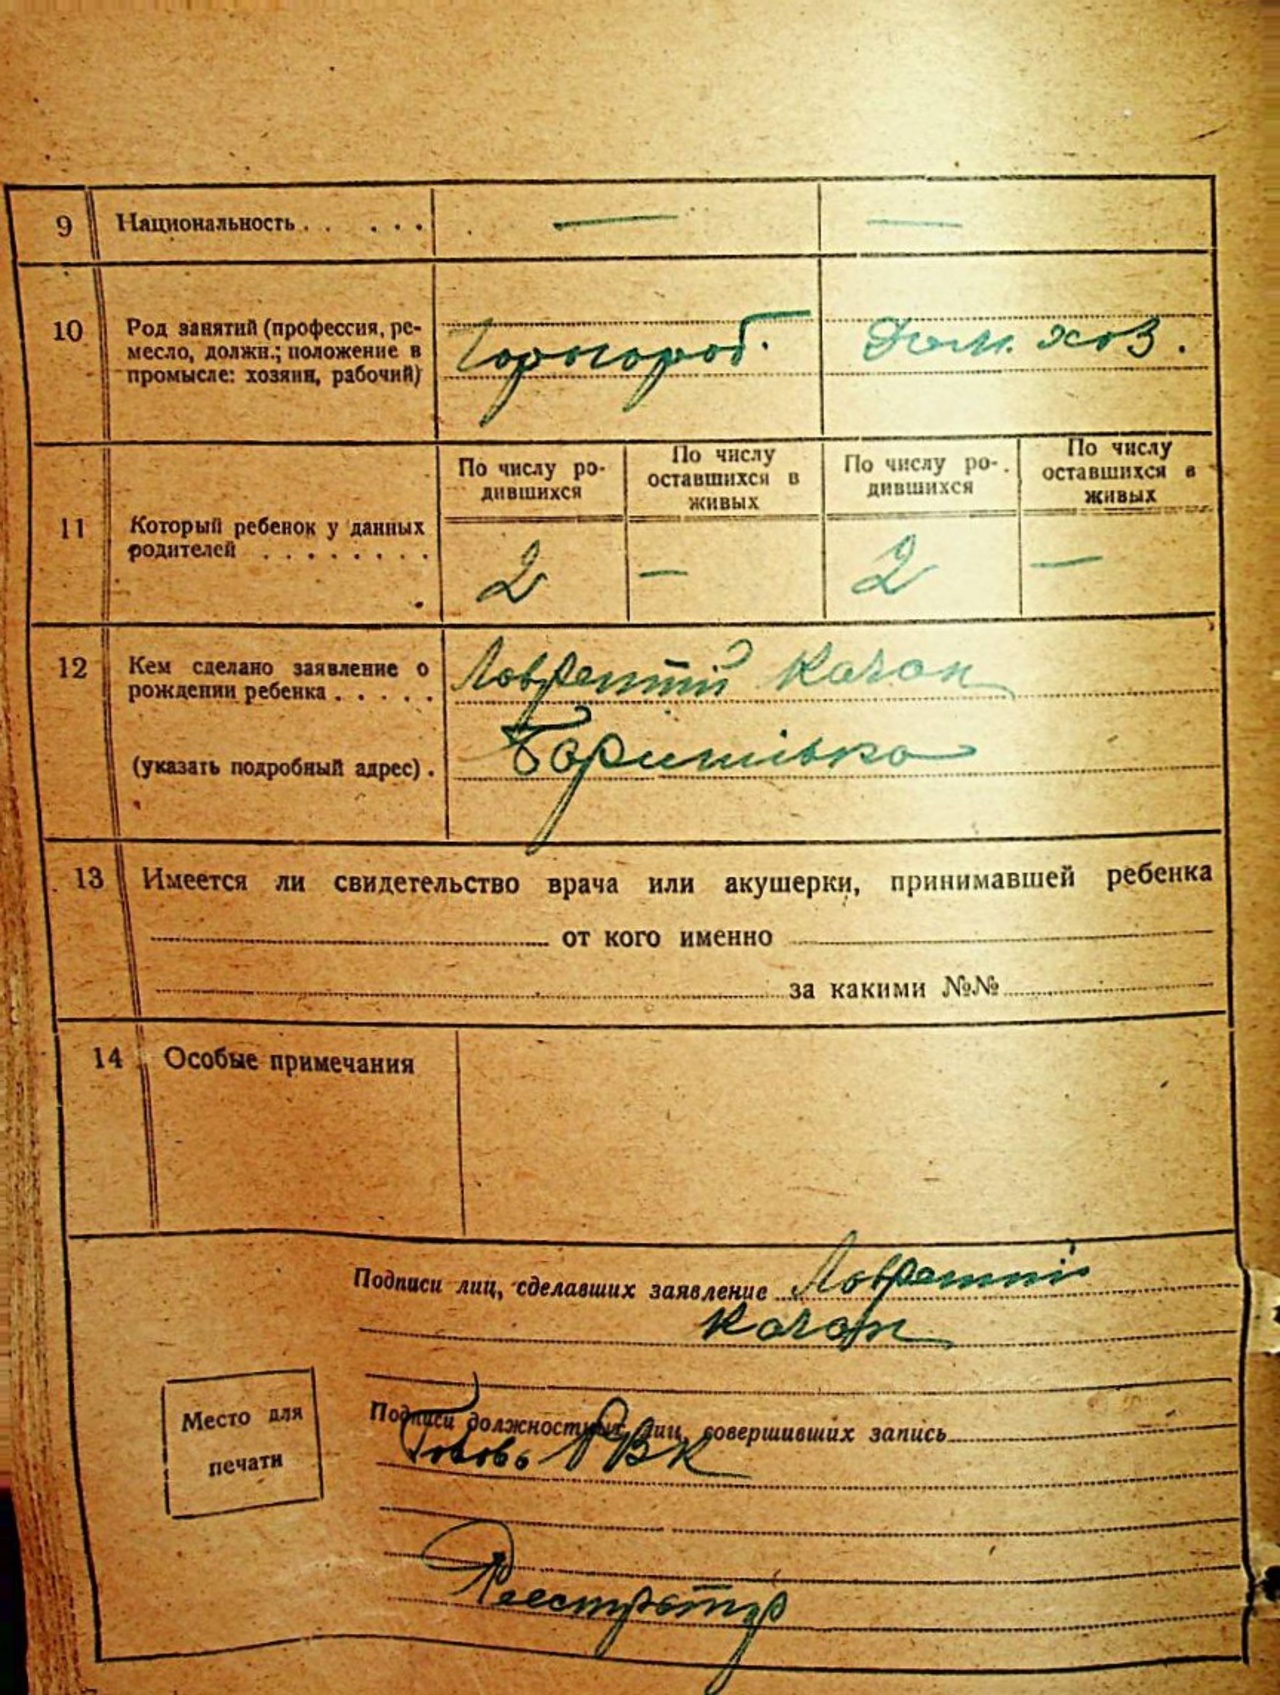 9 Национальность . . . . . . — —
10 Род занятий (профессия, ре-
месло, должн.; положение в
промысле: хозяин, рабочий)
Чорнороб. Дом. хоз.
11 Который ребенок у данных
родителей . . . . . . . .
По числу ро-
дившихся
По числу
оставшихся в
живых
По числу ро-
дившихся
По числу
оставшихся в
живых
2 — 2 —
12 Кем сделано заявление о
рождении ребенка . . . . .
(указать подробный адрес) .
Лаврентій Качан
13 Имеется ли свидетельство врача или акушерки, принимавшей ребенка
от кого именно
за какими №№
14 Особые примечания
Подписи лиц, сделавших заявление Лаврентій
Качан
Место для
печати
Подписи должностных лиц, совершивших запись
Голова РВК
Реєстратур